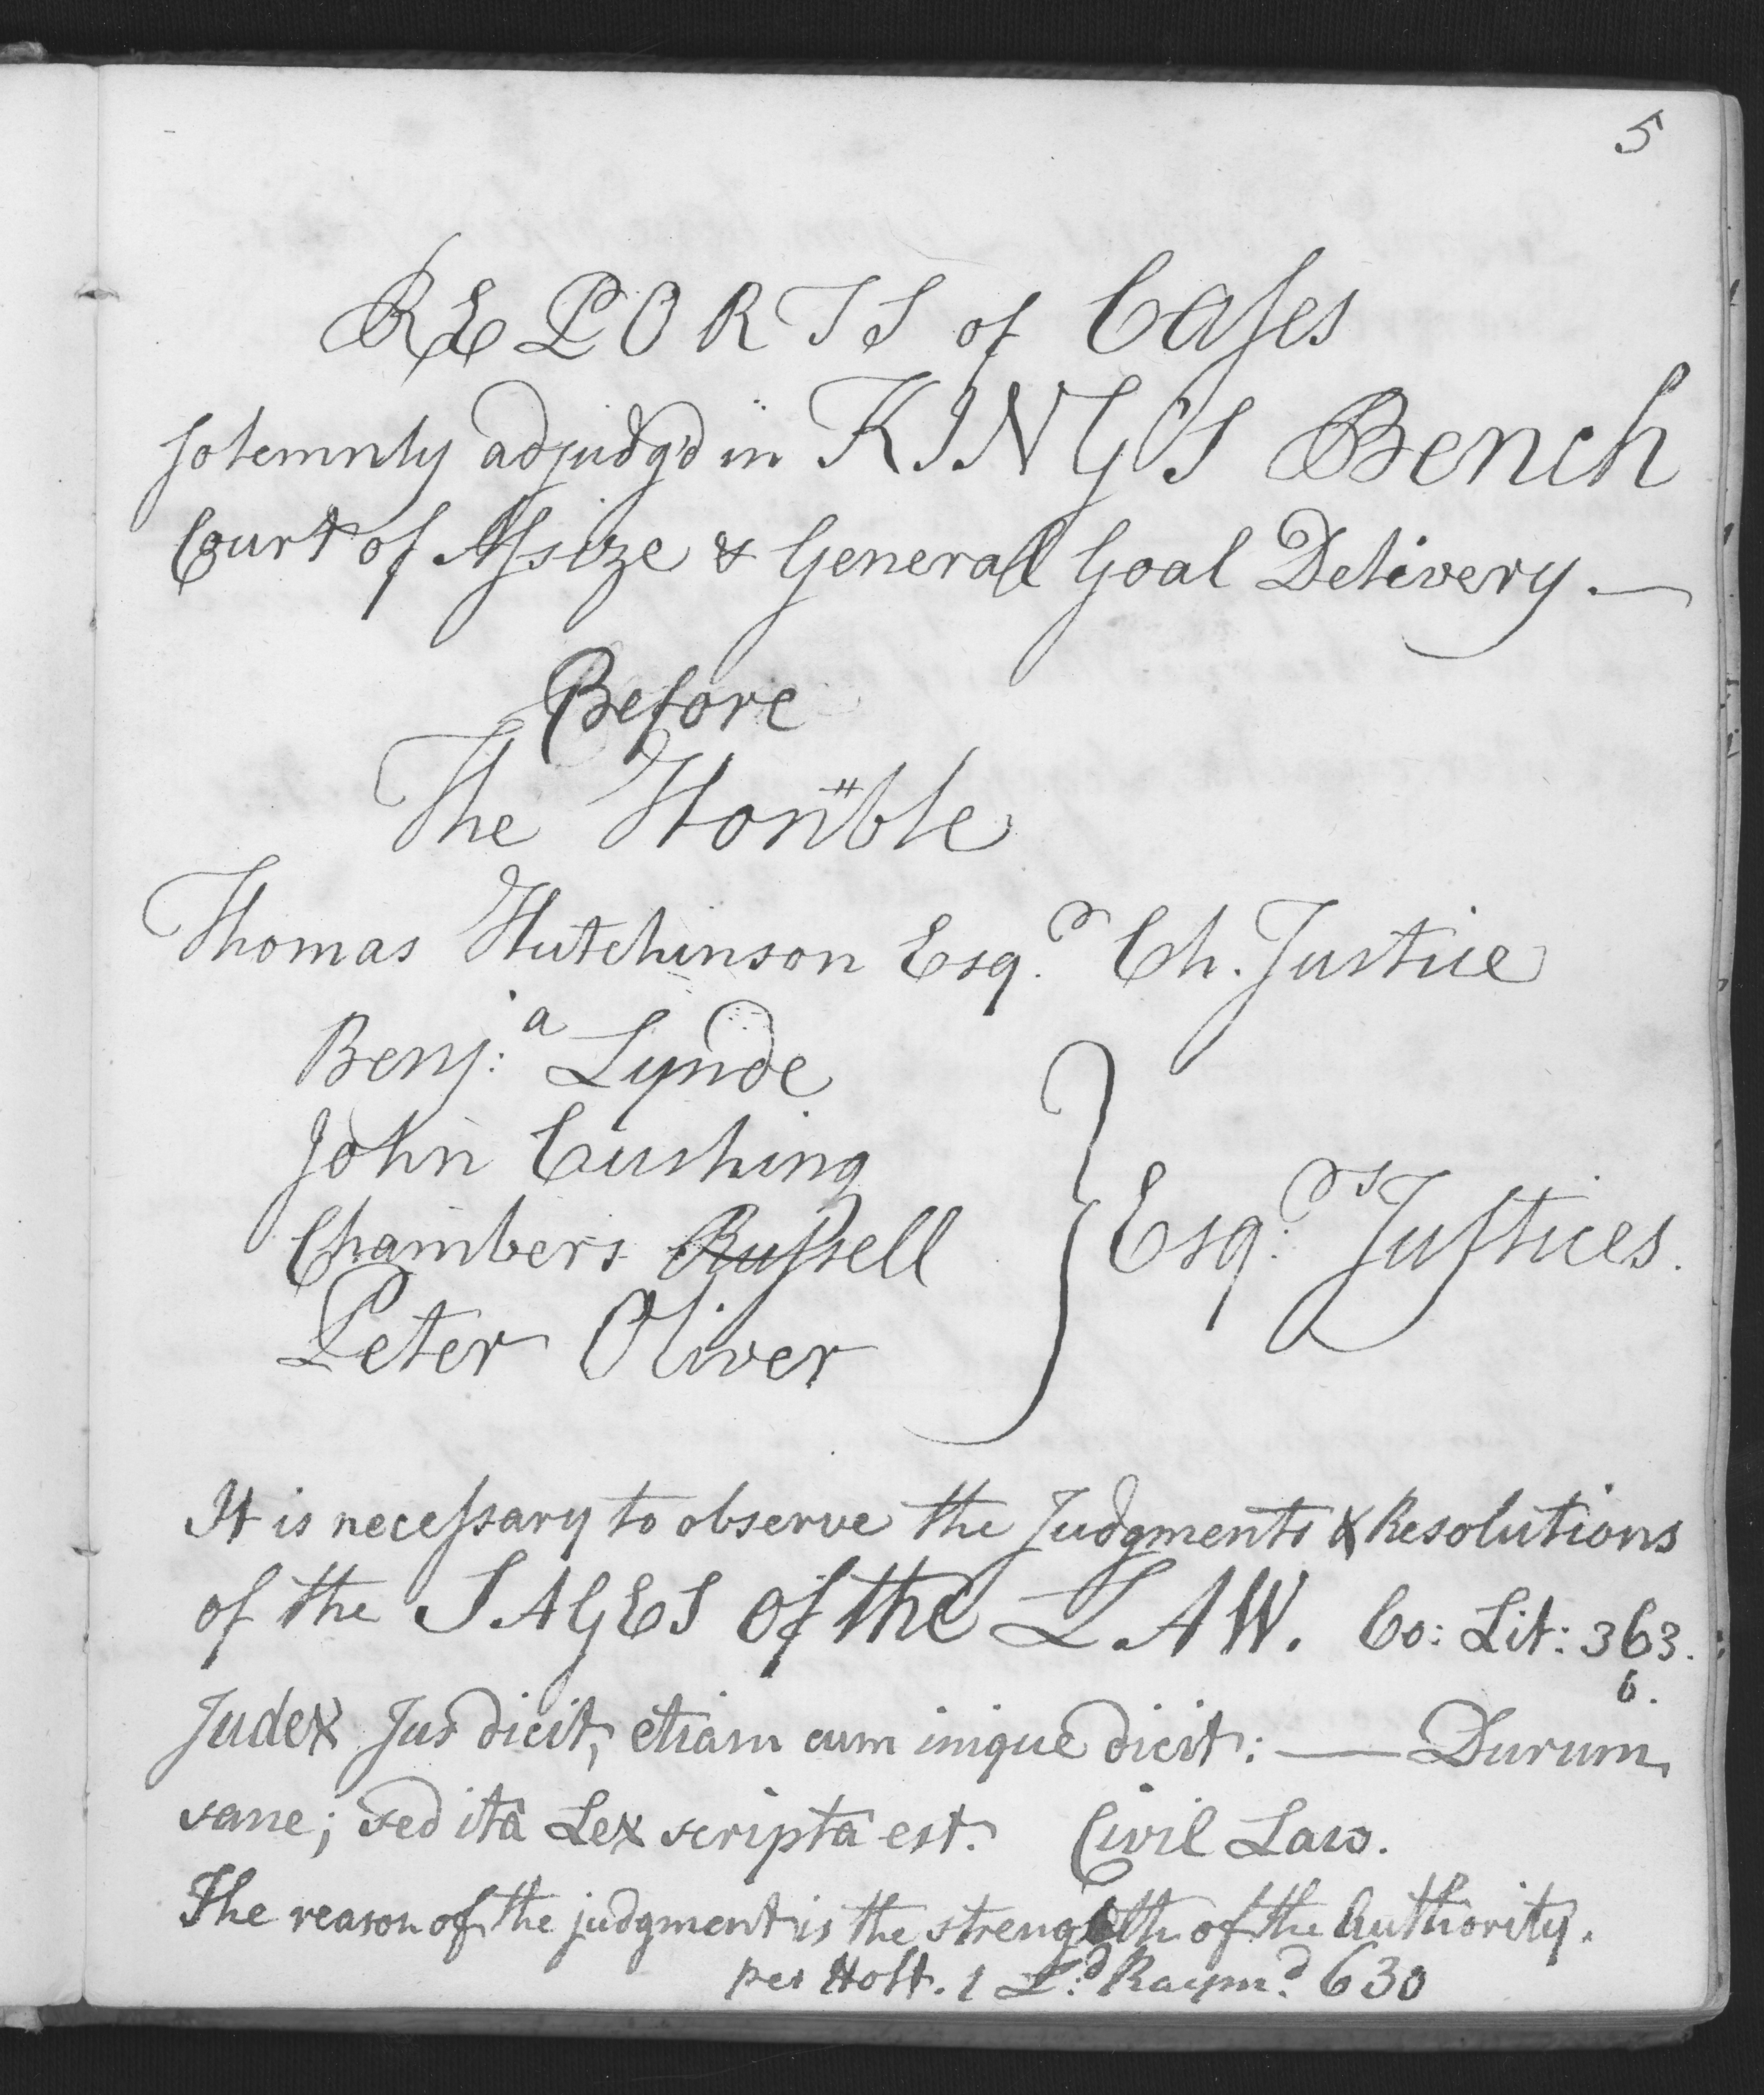 5
REPORTS of Cases
solemnly adjudg'd in KING'S Bench
Court of Assize & General Goal Delivery.—
Before
The Hon'ble
Thomas Hutchinson Esq.r Ch. Justice
Benj:a Lynde
John Cushing
Chambers Russell
Peter Oliver
} Esq:rs Justices.
It is necessary to observe the Judgments & Resolutions
of the SAGES of the LAW. Co: Lit: 363.
6.
Judex Jus dicit, etiam cum inique dicit: — Durum
sane; sed ita Lex scripta est. Civil Law.
The reason of the judgment is the strength of the Authority.
per Holt. 1 L.d Raym.d 630